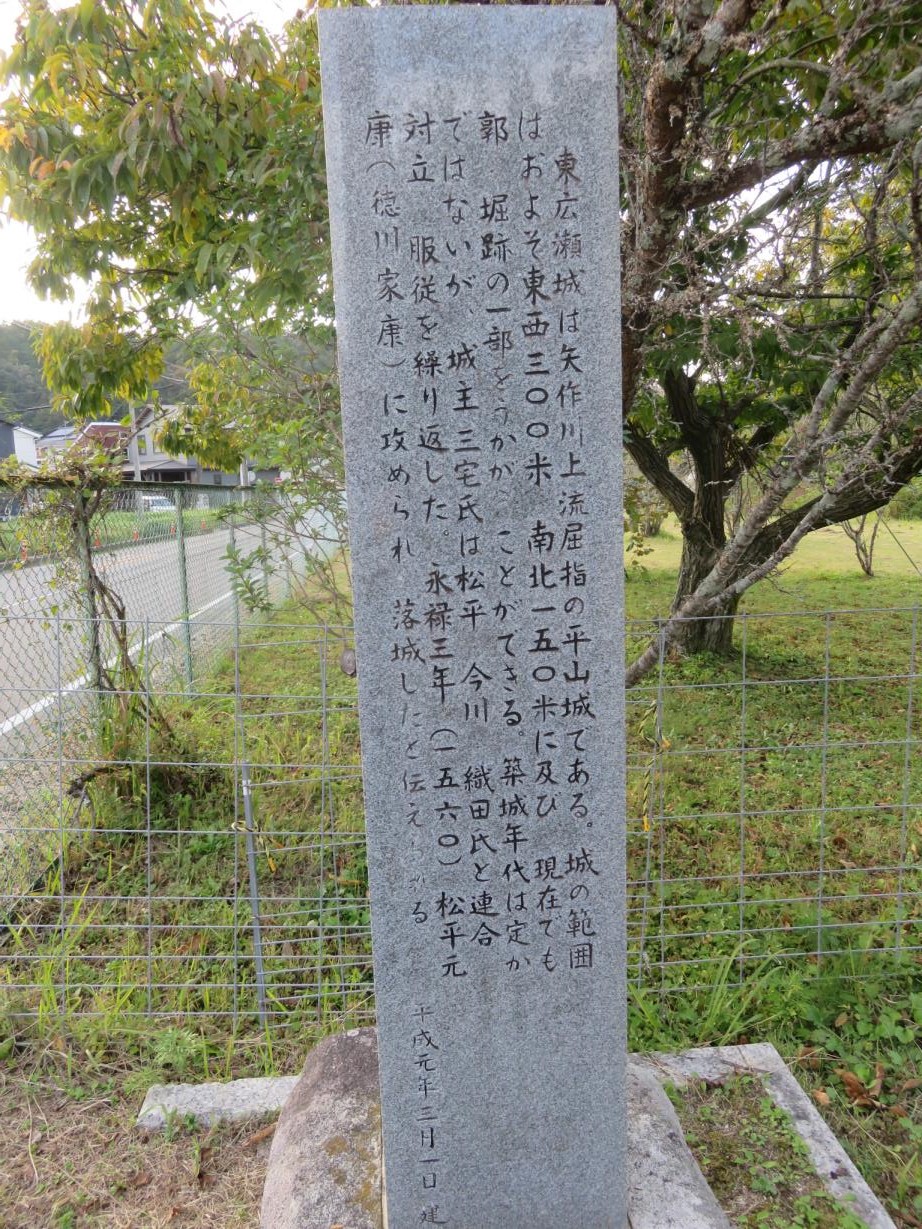 東広瀬城は矢作川上流屈指の平山城である。城の範囲
はおよそ東西三〇〇米 南北一五〇米に及び 現在でも
郭 堀跡の一部をうかがうことができる。築城年代は定か
ではないが、城主三宅氏は松平 今川 織田氏と連合
対立 服従を繰り返した。永禄三年(一五六〇)松平元
康(徳川家康)に攻められ 落城したと伝えられる
平成元年三月一日 建